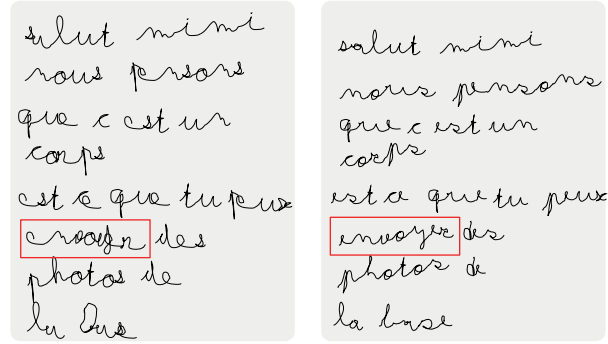 salut mimi
nous pnsons
que c est un
corps
est ce que tu peux
des
photos de
la
salut mimi
nous pensons
que c est un
corps
est ce que tu peux
envoyer des
photos de
la base